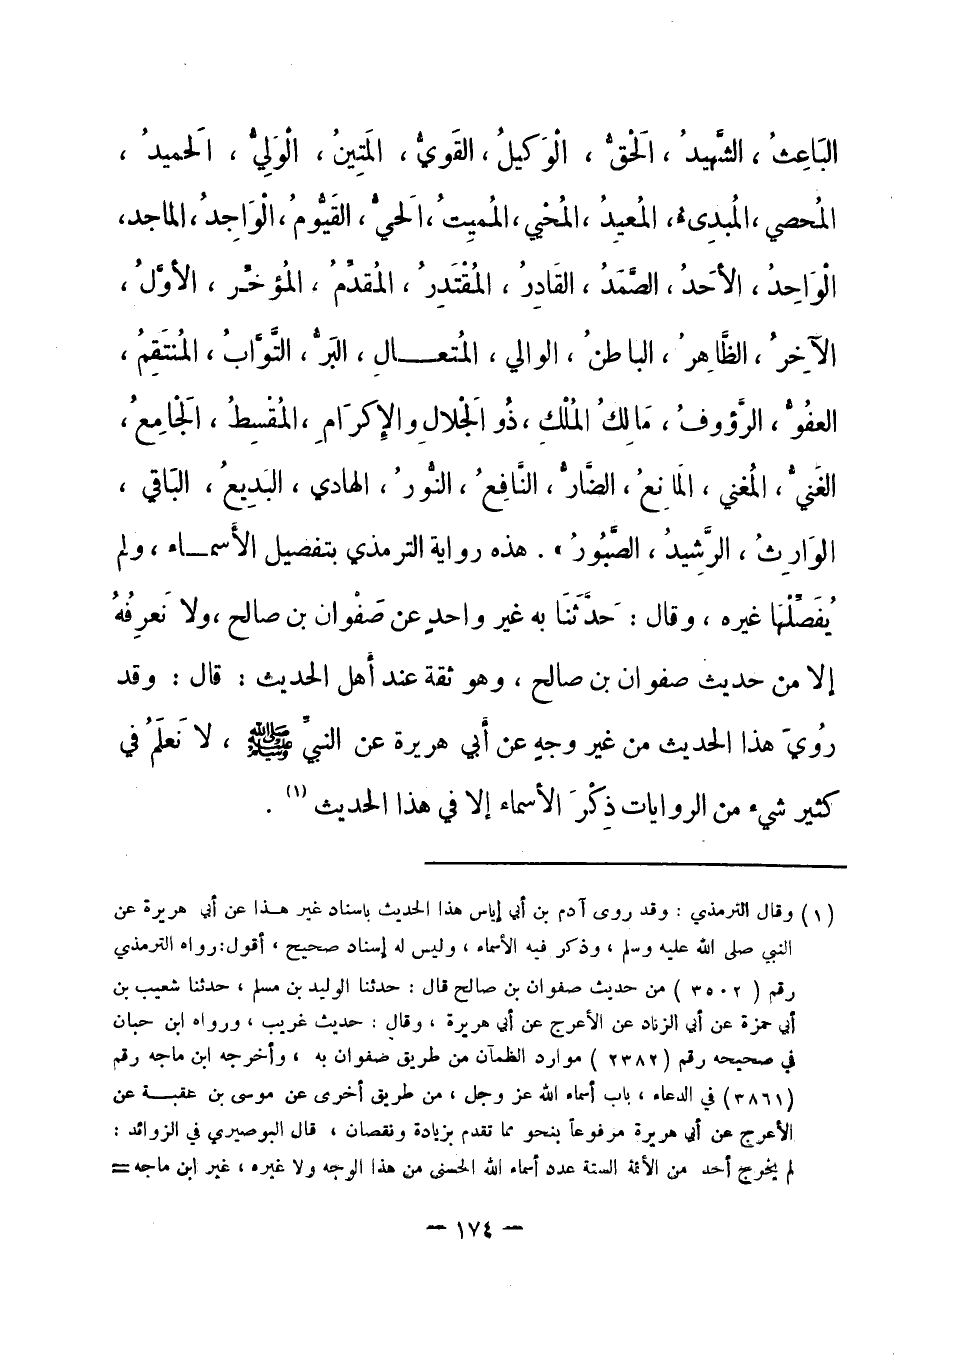 البَاعِثُ ، الشَّهِيدُ ، الَحْقُّ ، الْوَكيلُ ، القَويُّ ، المَتِينُ ، الْوَلِيُّ ، الَحميدُ ،
المُحصي ، المُبدِىءُ ، المُعِيدُ ، المُحْيي ، المُمِيتُ ، الَحيُّ ، القَيُّومُ ، الْوَاجِدُ ، الماجد ،
الْوَاحِدُ ، الأحَدُ ، الصَّمَدُ ، القَادِرُ ، المُقْتَدِرُ ، المُقدِّمُ ، المُؤخِّر ، الأوَّلُ ،
الآخِرُ ، الظَّاهِرُ ، الباطنُ ، الوالي ، المُتعــالِ ، البَرُّ ، التَّوَّابُ ، المُنتَقِمُ ،
العفُوُّ ، الرَّؤوفُ ، مَالِكُ المُلْكِ ، ذُو الَجْلالِ والإِكرَامِ ، المُقْسِطُ ، الَجْامِعُ ،
الغَنيُّ ، المُغني ، المَانِعُ ، الضَّارُّ ، النَّافِعُ ، النُّورُ ، الهادي ، البَدِيعُ ، البَاقي ،
الوَارِثُ ، الرَّشِيدُ ، الصَّبُورُ » . هذه رواية الترمذي بتفصيل الأسمــاء ، ولم
يُفَصِّلْهَا غيره ، وقال : حَدَّثَنَا به غير واحدٍ عن صَفْوان بن صالح ، ولا نَعرِفُهُ
إلا من حديث صفوان بن صالح ، وهو ثقة عند أهل الحديث : قال : وقد
رُويَ هذا الحديث من غير وجهٍ عن أبي هريرة عن النبيِّ ﷺ ، لا نَعلَمُ في
كثير شيء من الروايات ذِكْرَ الأسماء إلا في هذا الحديث (١) .
(١) وقال الترمذي : وقد روى آدم بن أبي إياس هذا الحديث بإسناد غير هــذا عن أبي هريرة عن
النبي صلى الله عليه وسلم ، وذكر فيه الأسماء ، وليس له إسناد صحيح ، أقول : رواه الترمذي
رقم ( ٣٥٠٢ ) من حديث صفوان بن صالح قال : حدثنا الوليد بن مسلم ، حدثنا شعيب بن
أبي حمزة عن أبي الزناد عن الأعرج عن أبي هريرة ، وقال : حديث غريب ، ورواه ابن حبان
في صحيحه رقم ( ٢٣٨٢ ) موارد الظمآن من طريق صفوان به ، وأخرجه ابن ماجه رقم
(٣٨٦١) في الدعاء ، باب أسماء الله عز وجل ، من طريق أخرى عن موسى بن عقبــة عن
الأعرج عن أبي هريرة مرفوعاً بنحو مما تقدم بزيادة ونقصان ، قال البوصيري في الزوائد :
لم يخرج أحد من الأئمة الستة عدد أسماء الله الحسنى من هذا الوجه ولا غيره ، غير ابن ماجه =
– ١٧٤ –